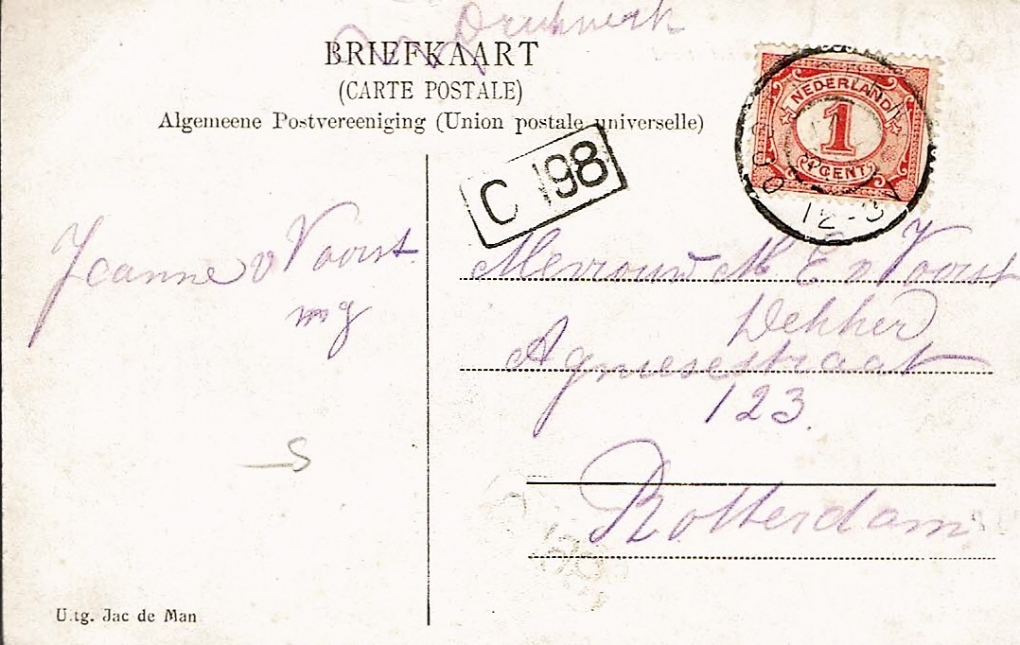 Drukwerk
BRIEFKAART
(CARTE POSTALE)
Algemeene Postvereeniging (Union postale universelle)
NEDERLAND
1
CENT
12-3
C 198
Jeanne v Voorst
Mevrouw M E v Voorst
Dekker
Agniesestraat
123.
Rotterdam.
S
U.tg. Jac de Man